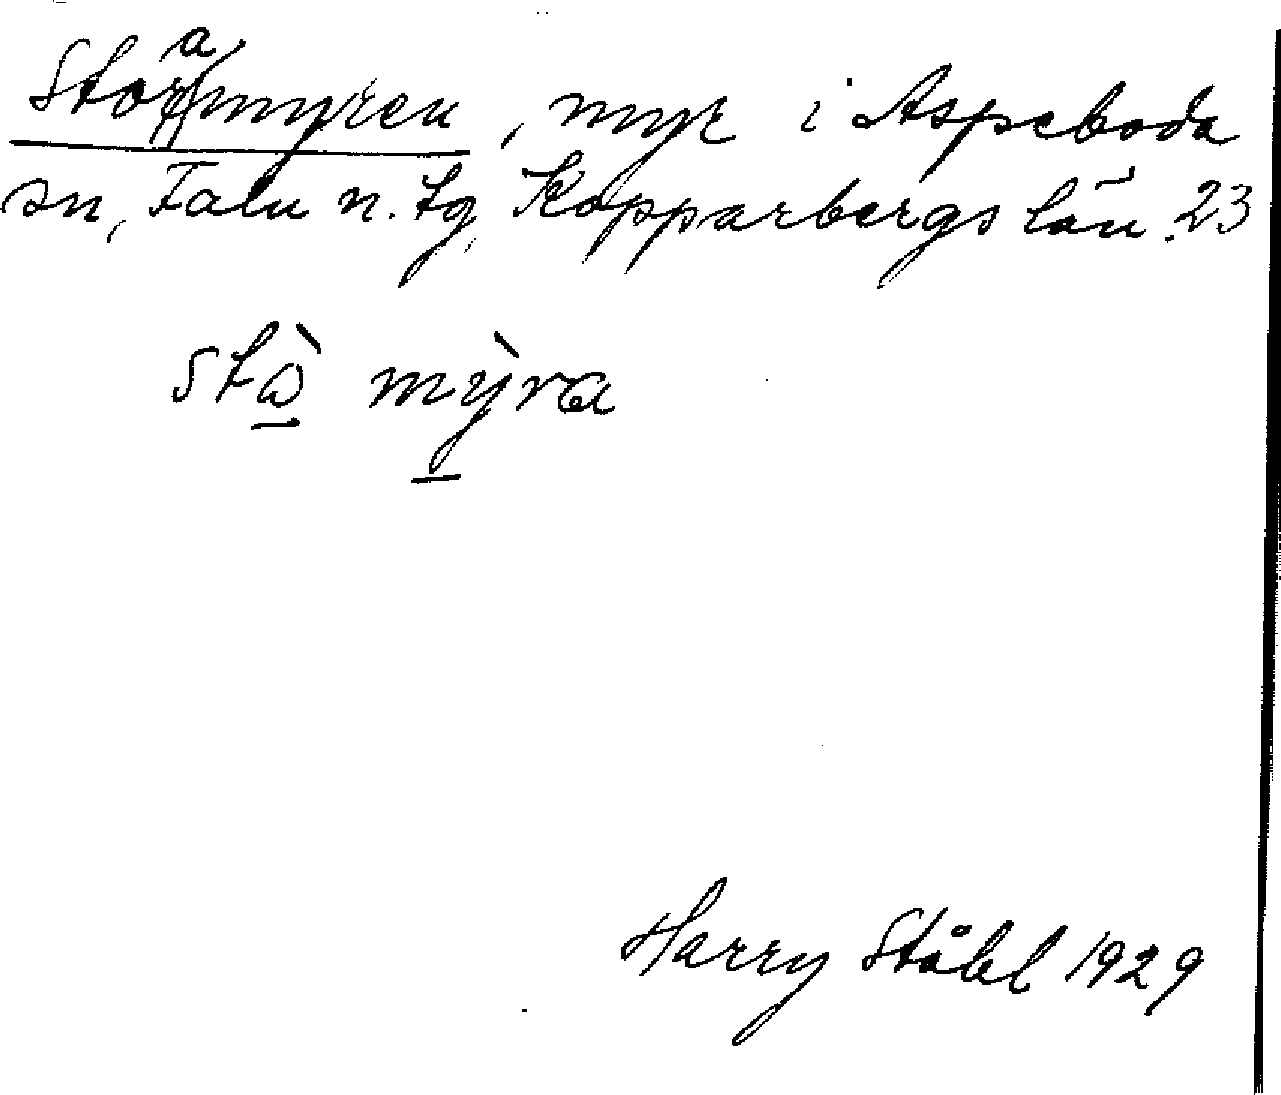 Storamyren, myr i Aspeboda
sn, Falu n. tg, Kopparbergs län. 23
stò mỳra
Harry Ståhl 1929